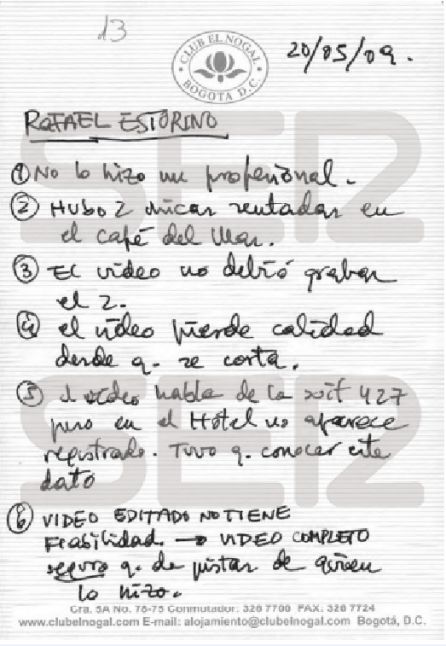 13
CLUB EL NOGAL
BOGOTA D.C.
20/05/09.
RAFAEL ESTORINO
① No lo hizo un profesional.
② HUBO 2 chicas sentadas en
el café del Mar.
③ EL video no debió grabar
el 2.
④ el video pierde calidad
desde q. se corta.
⑤ el video habla de la suit 427
pero en el Hotel no aparece
registrado. Tuvo q. conocer este
dato
⑥ VIDEO EDITADO NO TIENE
FIABILIDAD. → VIDEO COMPLETO
seguro q. da pistas de quien
lo hizo.
Cra. 5A No. 78-75 Conmutador: 326 7700 FAX: 326 7724
www.clubelnogal.com E-mail: alojamiento@clubelnogal.com Bogotá, D.C.
SER
SER